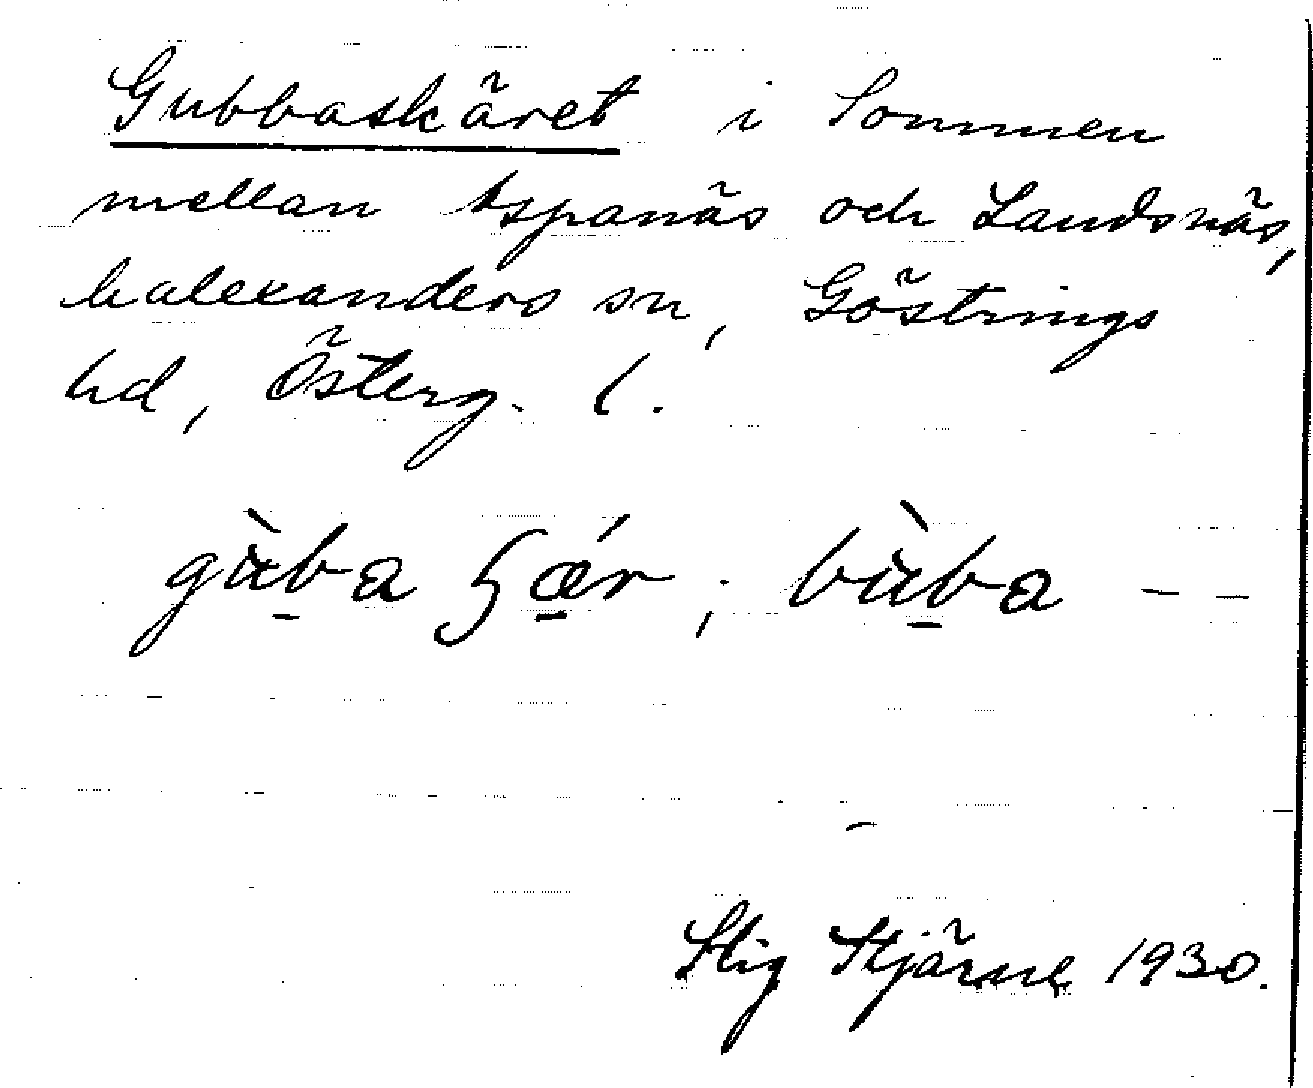 Gubbaskäret i Sommen
mellan Aspanäs och Landsnäs,
Malexanders sn, Göstrings
hd, Österg. l.
gùba ʃǽr; bùba – –
Stig Stjärne 1930.